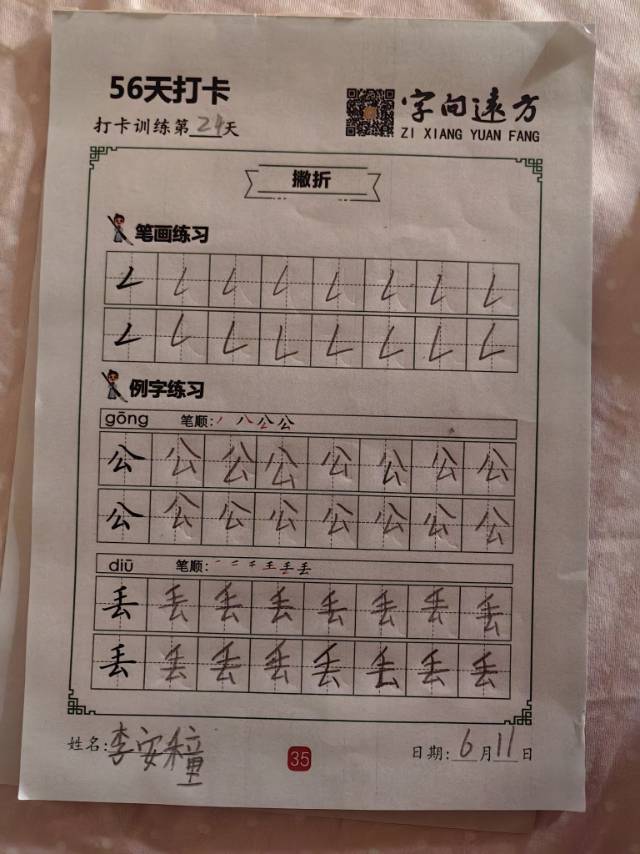 56天打卡
字向远方
打卡训练第24天
ZI XIANG YUAN FANG
撇折
笔画练习
例字练习
gōng 笔顺:
公 公 公 公 公 公 公 公
公 公 公 公 公 公 公 公
diū 笔顺:
丢 丢 丢 丢 丢 丢 丢 丢
丢 丢 丢 丢 丢 丢 丢 丢
姓名:李安 35 日期:6月11日